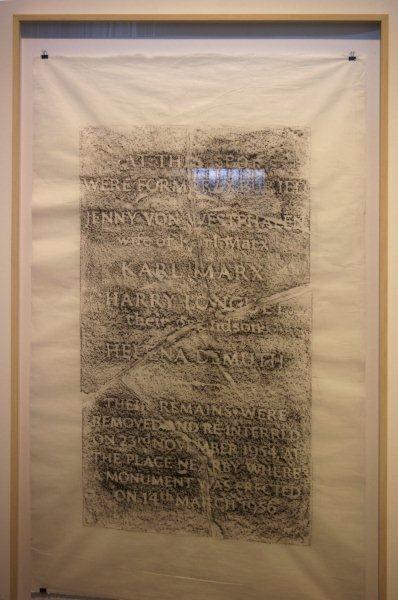 AT THIS SPOT
WERE FORMERLY BURIED
JENNY VON WESTPHALEN
wife of Karl Marx
KARL MARX
HARRY LONGUET
their grandson
HELENA DEMUTH
THEIR REMAINS WERE
REMOVED AND RE-INTERRED
ON 23rd NOVEMBER 1954 AT
THE PLACE NEARBY WHERE
MONUMENT WAS ERECTED
ON 14th MARCH 1956